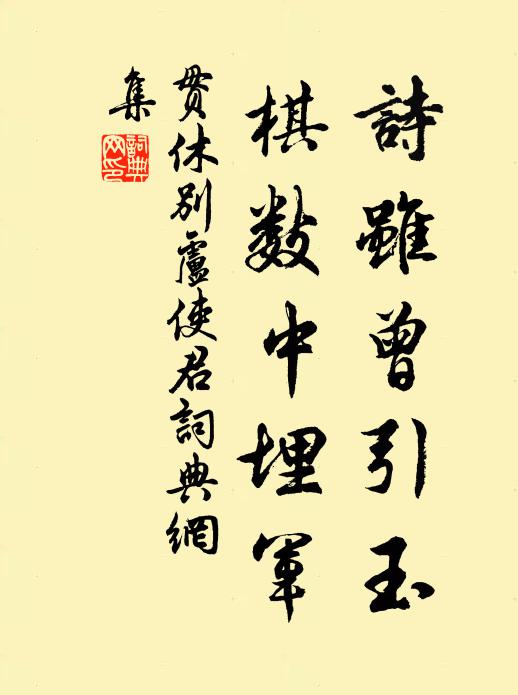 詩雖曾引玉
棋數中埋軍
貫休別盧使君詞典網
集
詞典網印